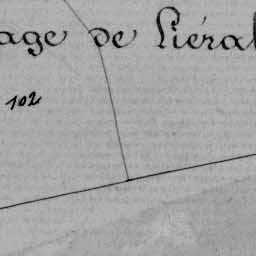 age de Piéral
102